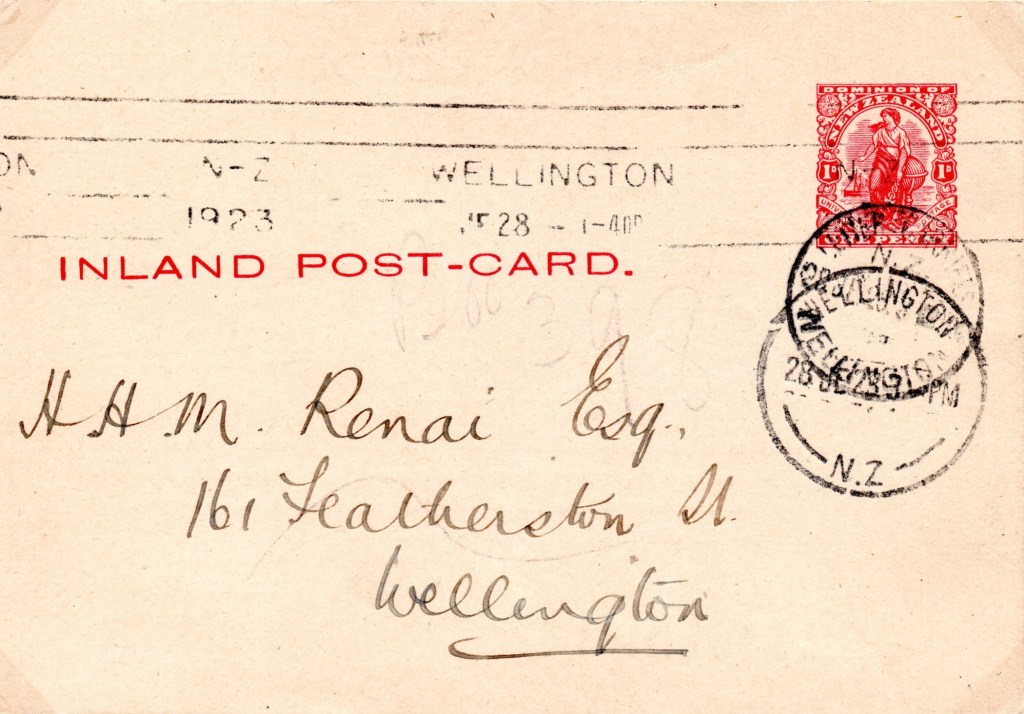 DOMINION OF
NEW ZEALAND
1D 1D
PENNY
N-Z WELLINGTON N-Z
1923 28 - 1-4
INLAND POST-CARD.
N.Z
WELLINGTON
WELLINGTON
28 JE 23 PM
N.Z
H.H.M. Renai Esq.,
161 Featherston St.
Wellington